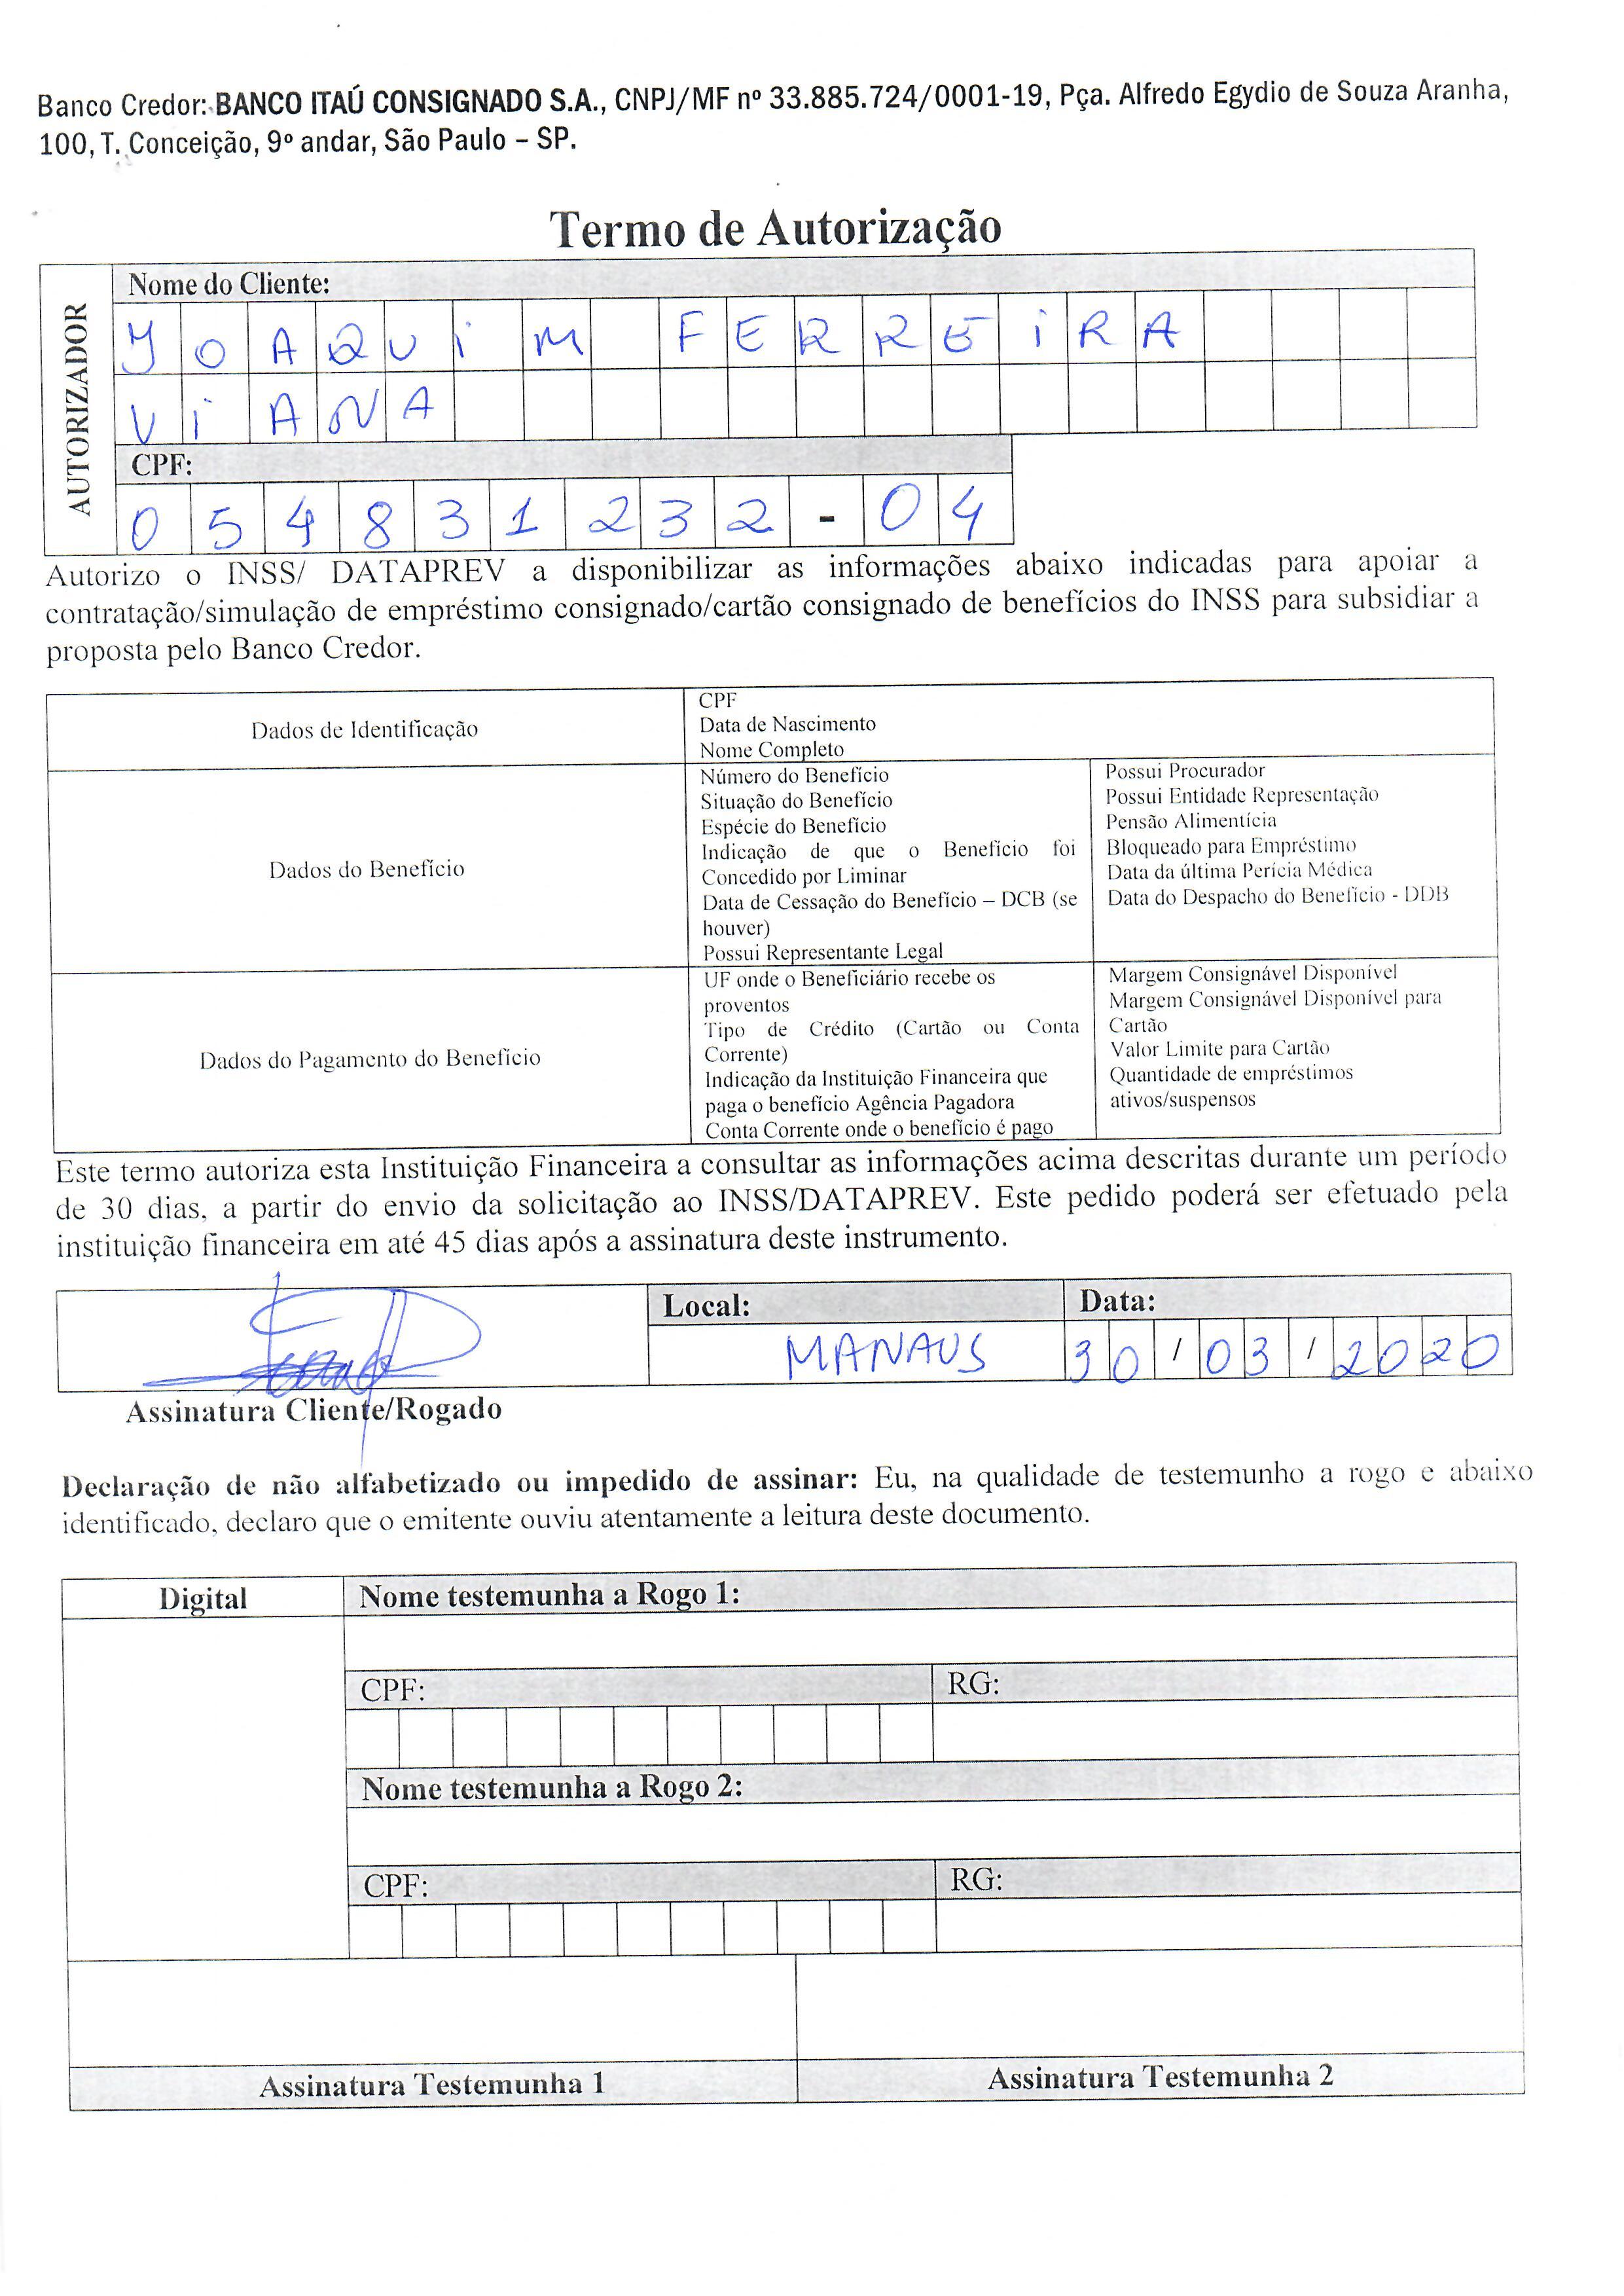 Banco Credor: BANCO ITAÚ CONSIGNADO S.A., CNPJ/MF nº 33.885.724/0001-19, Pça. Alfredo Egydio de Souza Aranha,
100, T. Conceição, 9º andar, São Paulo – SP.
Termo de Autorização
AUTORIZADOR
Nome do Cliente:
JOAQUIM FERREIRA
VIANA
CPF:
054831232-04
Autorizo o INSS/ DATAPREV a disponibilizar as informações abaixo indicadas para apoiar a
contratação/simulação de empréstimo consignado/cartão consignado de benefícios do INSS para subsidiar a
proposta pelo Banco Credor.
Dados de Identificação
CPF
Data de Nascimento
Nome Completo
Dados do Benefício
Número do Benefício
Situação do Benefício
Espécie do Benefício
Indicação de que o Benefício foi
Concedido por Liminar
Data de Cessação do Benefício – DCB (se
houver)
Possui Representante Legal
Possui Procurador
Possui Entidade Representação
Pensão Alimentícia
Bloqueado para Empréstimo
Data da última Perícia Médica
Data do Despacho do Benefício - DDB
Dados do Pagamento do Benefício
UF onde o Beneficiário recebe os
proventos
Tipo de Crédito (Cartão ou Conta
Corrente)
Indicação da Instituição Financeira que
paga o benefício Agência Pagadora
Conta Corrente onde o benefício é pago
Margem Consignável Disponível
Margem Consignável Disponível para
Cartão
Valor Limite para Cartão
Quantidade de empréstimos
ativos/suspensos
Este termo autoriza esta Instituição Financeira a consultar as informações acima descritas durante um período
de 30 dias, a partir do envio da solicitação ao INSS/DATAPREV. Este pedido poderá ser efetuado pela
instituição financeira em até 45 dias após a assinatura deste instrumento.
Local:
Data:
MANAUS
30/03/2020
Assinatura Cliente/Rogado
Declaração de não alfabetizado ou impedido de assinar: Eu, na qualidade de testemunho a rogo e abaixo
identificado, declaro que o emitente ouviu atentamente a leitura deste documento.
Digital
Nome testemunha a Rogo 1:
CPF:
RG:
Nome testemunha a Rogo 2:
CPF:
RG:
Assinatura Testemunha 1
Assinatura Testemunha 2